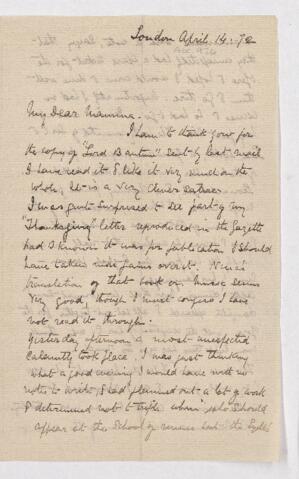 London April 14. 72
My Dear Mamma.
I have to thank you for
the copy of "Lord Bantam" sent by last mail
I have read it & like it very much on the
whole, It is a very clever satire.
I was quite surprised to see part of my
"Thanksgiving" letter reproduced in the Gazette
had I known it was for publication I should
have taken more pains over it.
translation of that book on
very good, though I must confess I have
not read it through.
Yesterday afternoon a most unexpected
calamity took place. I was just thinking
what a good evening I would have with no
to write, & had planned out a lot of work
& determined not to trifle when who should
appear at the School of but the